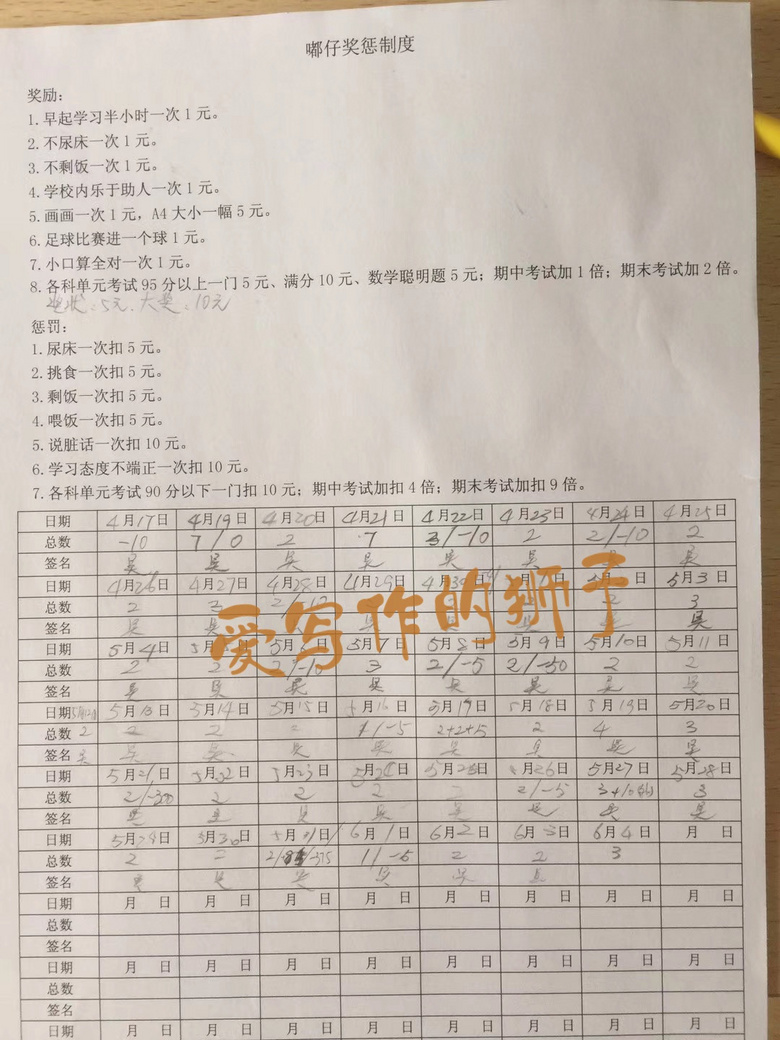 嘟仔奖惩制度
奖励:
1.早起学习半小时一次1元。
2.不尿床一次1元。
3.不剩饭一次1元。
4.学校内乐于助人一次1元。
5.画画一次1元，A4大小一幅5元。
6.足球比赛进一个球1元。
7.小口算全对一次1元。
8.各科单元考试95分以上一门5元、满分10元、数学聪明题5元；期中考试加1倍；期末考试加2倍。
5元、大奖:10元
惩罚:
1.尿床一次扣5元。
2.挑食一次扣5元。
3.剩饭一次扣5元。
4.喂饭一次扣5元。
5.说脏话一次扣10元。
6.学习态度不端正一次扣10元。
7.各科单元考试90分以下一门扣10元；期中考试加扣4倍；期末考试加扣9倍。
日期 4月17日 4月19日 4月20日 4月21日 4月22日 4月23日 4月24日 4月25日
总数 -10 7/0 2 7 3/-10 2 2/-10 2
签名 吴 吴 吴 吴 吴 吴 吴
日期 4月26日 4月27日 4月28日 4月29日 4月30日 月 日 月 日 5月3日
总数 2 2 3
签名 吴 吴 吴
爱写作的狮子
日期 5月4日 月 日 5月6日 5月7日 5月8日 5月9日 5月10日 5月11日
总数 2 2 2/-10 3 2/-5 2/-50 2 2
签名 吴 吴 吴 吴 吴 吴 吴 吴
日期 5月12日 5月13日 5月14日 5月15日 5月16日 月 日 5月18日 5月19日 5月20日
总数 2 2 2 2 1/-5 2+2+5 2 4 3
签名 吴 吴 吴 吴 吴 吴 吴 吴 吴
日期 5月21日 5月22日 5月23日 5月24日 5月25日 5月26日 5月27日 5月28日
总数 2 2 2 2 2/-5 3
签名 吴 吴 吴 吴 吴 吴 吴 吴
日期 5月29日 5月30日 5月31日 6月1日 6月2日 6月3日 6月4日 月 日
总数 2 2 1/-5 2 2 3
签名 吴 吴 吴 吴 吴 吴
日期 月 日 月 日 月 日 月 日 月 日 月 日 月 日 月 日
总数
签名
日期 月 日 月 日 月 日 月 日 月 日 月 日 月 日 月 日
总数
签名
日期 月 日 月 日 月 日 月 日 月 日 月 日 月 日 月 日